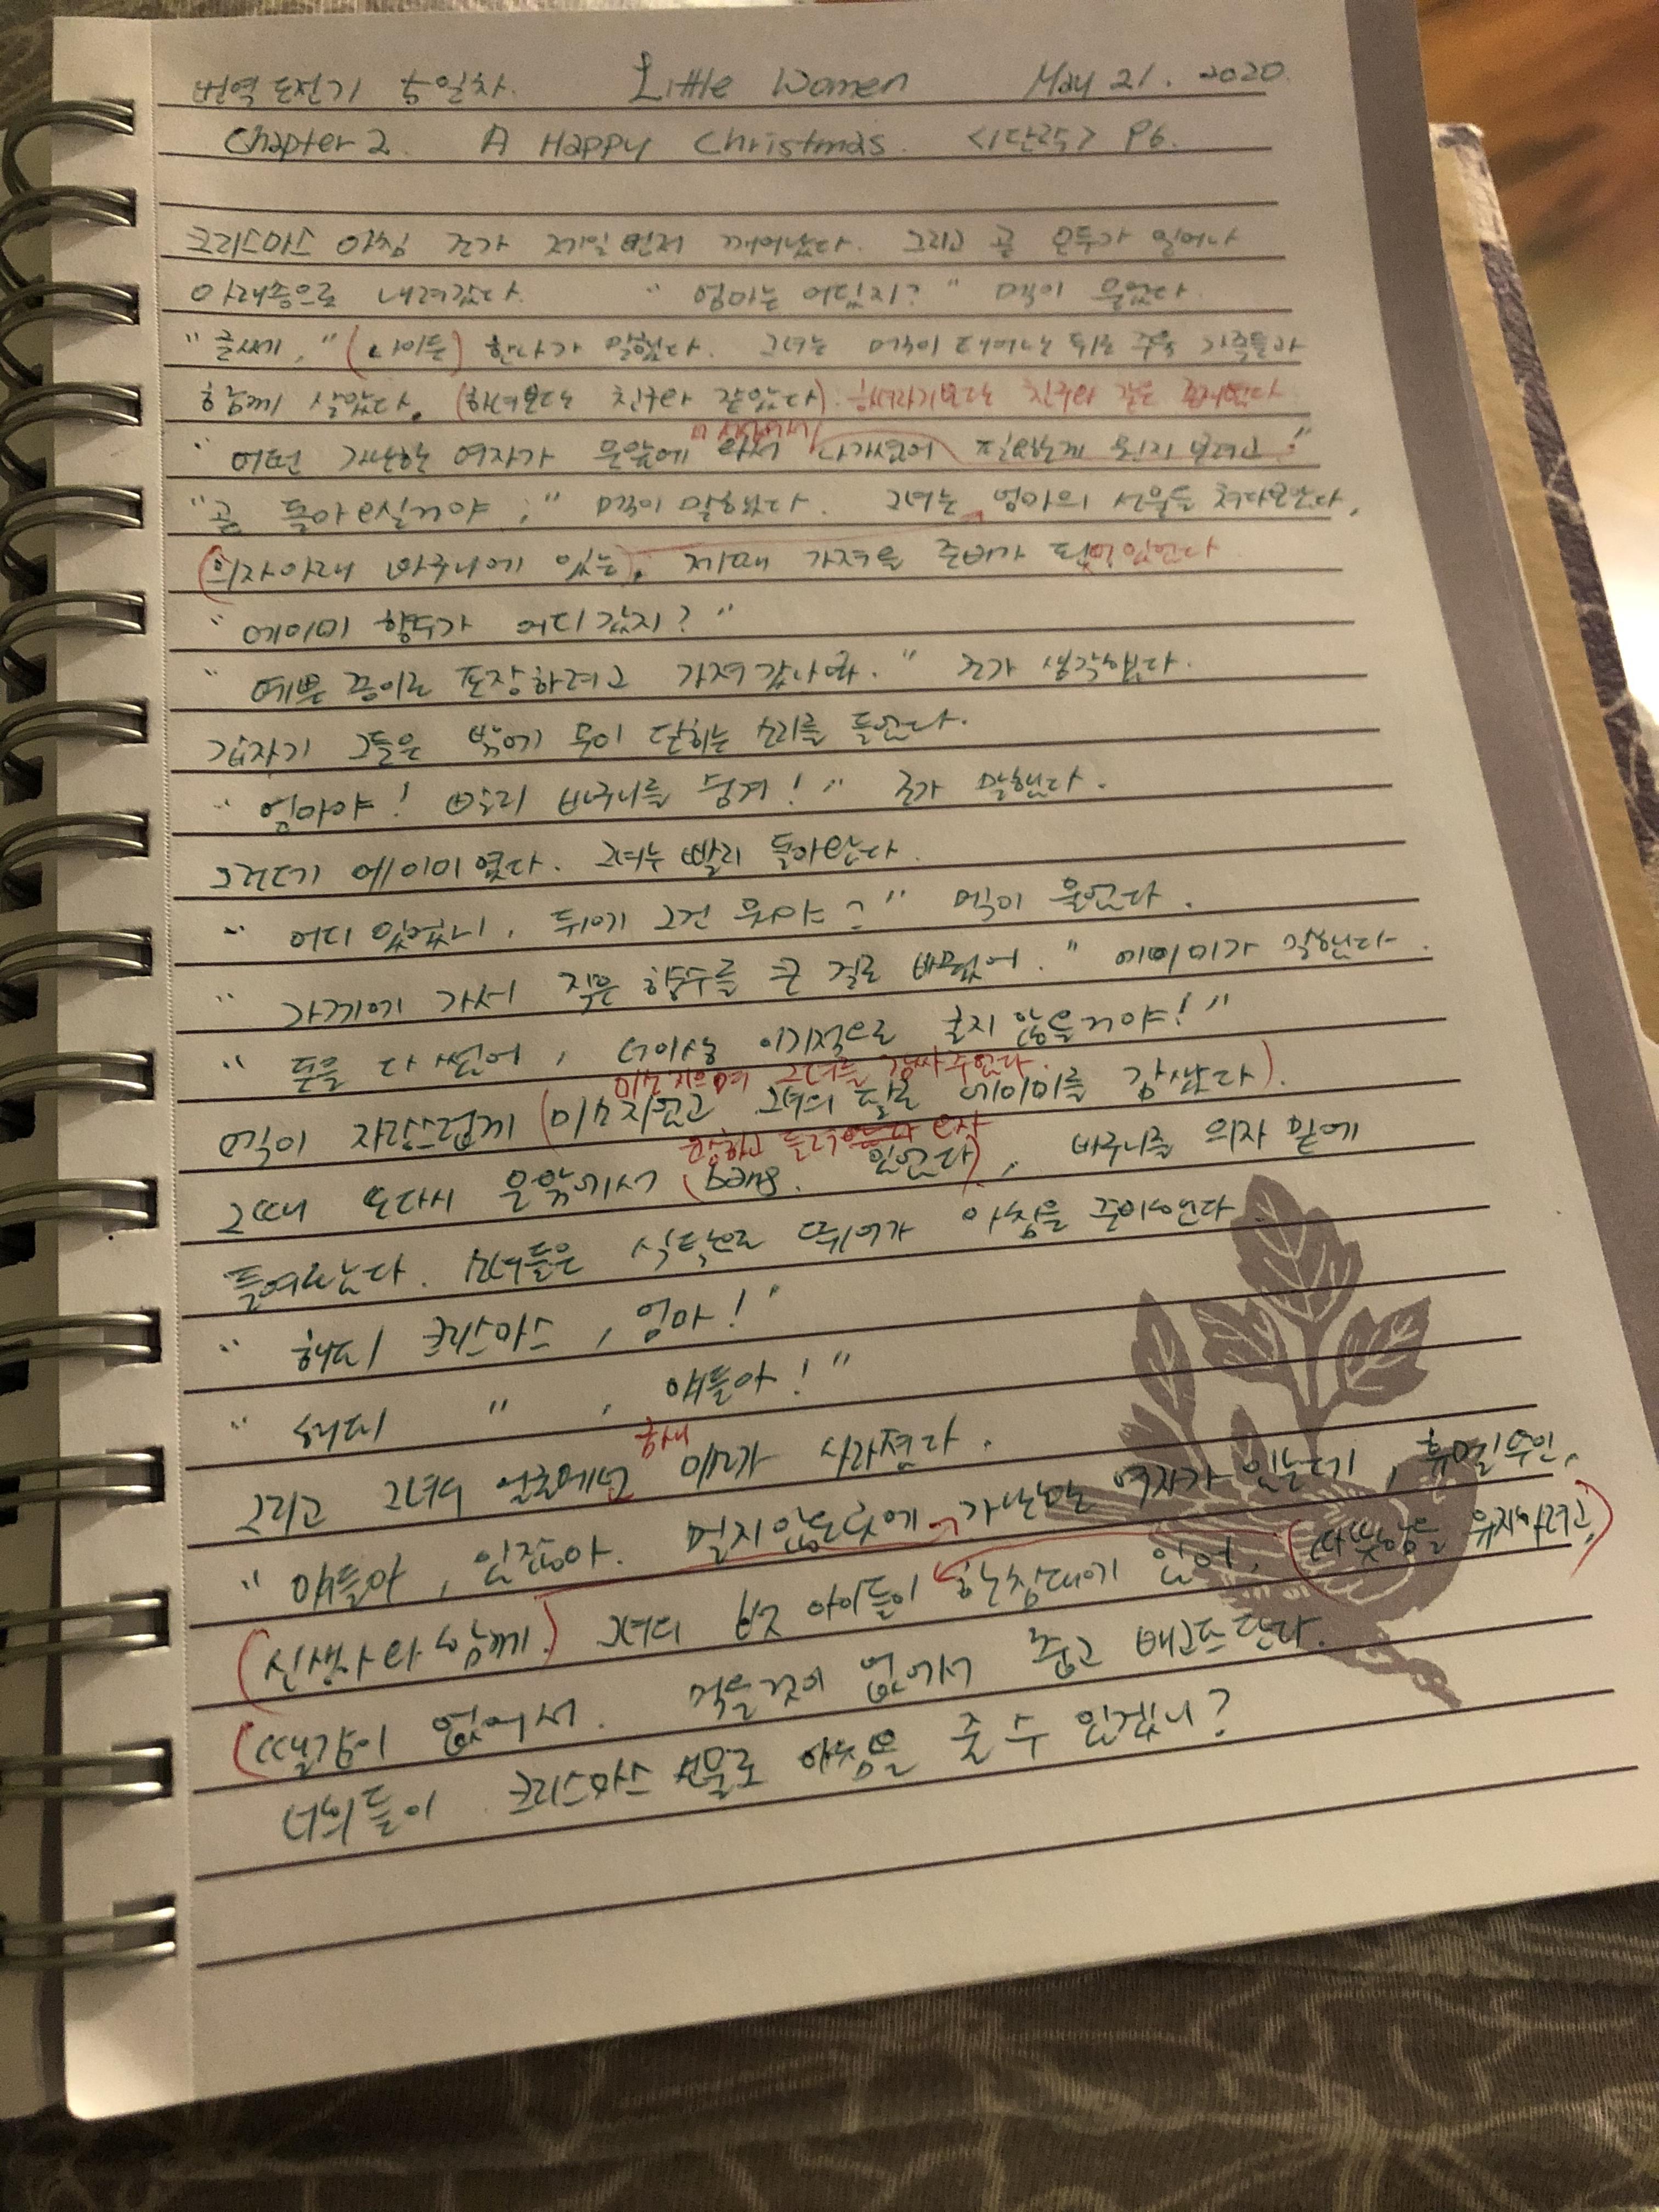 번역 도전기 5일차. Little Women May 21. 2020.
Chapter 2. A Happy Christmas. <1단락> P6.
크리스마스 아침 조가 제일 먼저 깨어났다. 그리고 곧 모두가 일어나
아래층으로 내려갔다. "엄마는 어딨지?" 멕이 물었다.
"글쎄," (나이든) 한나가 말했다. 그녀는 멕이 태어난 뒤로 주욱 가족들과
함께 살았다. (하녀보다는 친구와 같았다) 하녀라기보다는 친구와 같은 존재였다
"어떤 가난한 여자가 문앞에 와서 나가셨어 필요한게 뭔지 보려고!"
"곧 돌아오실거야;" 멕이 말했다. 그녀는 엄마의 선물들 쳐다보았다,
(의자아래 바구니에 있는). 제때 가져올 준비가 되어있었다
"에이미 향수가 어디갔지?"
"예쁜 종이로 포장하려고 가져갔나봐." 조가 생각했다.
갑자기 그들은 밖에 문이 닫히는 소리를 들었다.
"엄마야! 빨리 바구니를 숨겨!" 조가 말했다.
그러더니 에이미였다. 그녀는 빨리 돌아왔다.
"어디 있었니, 뒤에 그건 뭐야?" 멕이 물었다.
"가게에 가서 작은 향수를 큰 걸로 바꿨어." 에이미가 말했다.
"돈을 다 썼어, 더이상 이기적으로 굴지 않을거야!"
미소지으며 그녀를 감싸주었다.
멕이 자랑스럽게 (미소지었고 그녀의 팔로 에이미를 감쌌다).
쾅하고 들려왔다
그때 또다시 문앞에서 (bang. 있었다), 바구니를 의자 밑에
들여놨다. 소녀들은 식탁으로 뛰어가 아침을 준비했다.
"해피 크리스마스, 엄마!"
"해피 " , 얘들아!"
그리고 그녀의 얼굴에선 미소가 사라졌다.
"얘들아, 있잖아. 멀지않은곳에 가난한 여자가 있는데, 휴멜부인,
(신생아와 함께.) 그녀의 6 아이들이 한침대에 있어, (따뜻함을 유지하려고,)
(땔감이 없어서. 먹을것이 없어서 춥고 배고프단다.
너희들이 크리스마스 선물로 아침을 줄 수 있겠니?